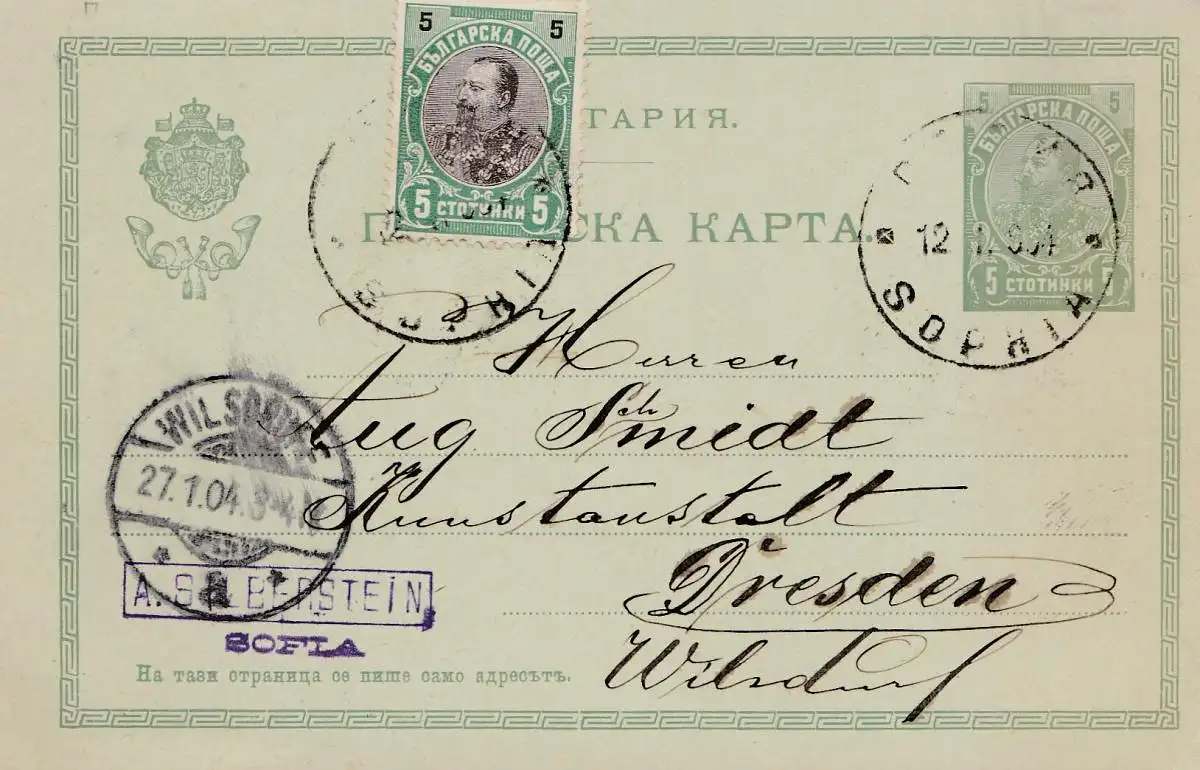 5 5
БЪЛГАРСКА ПОЩА
5 СТОТИНКИ 5
ГАРИЯ.
СКА КАРТА.
5 5
БЪЛГАРСКА ПОЩА
5 СТОТИНКИ 5
12
SOPHIA
Herren
Aug Schmidt
Kunstanstalt
Dresden
Wilsdruf
27.1.04.
A. SILBERSTEIN
SOFIA
На тази страница се пише само адресътъ.